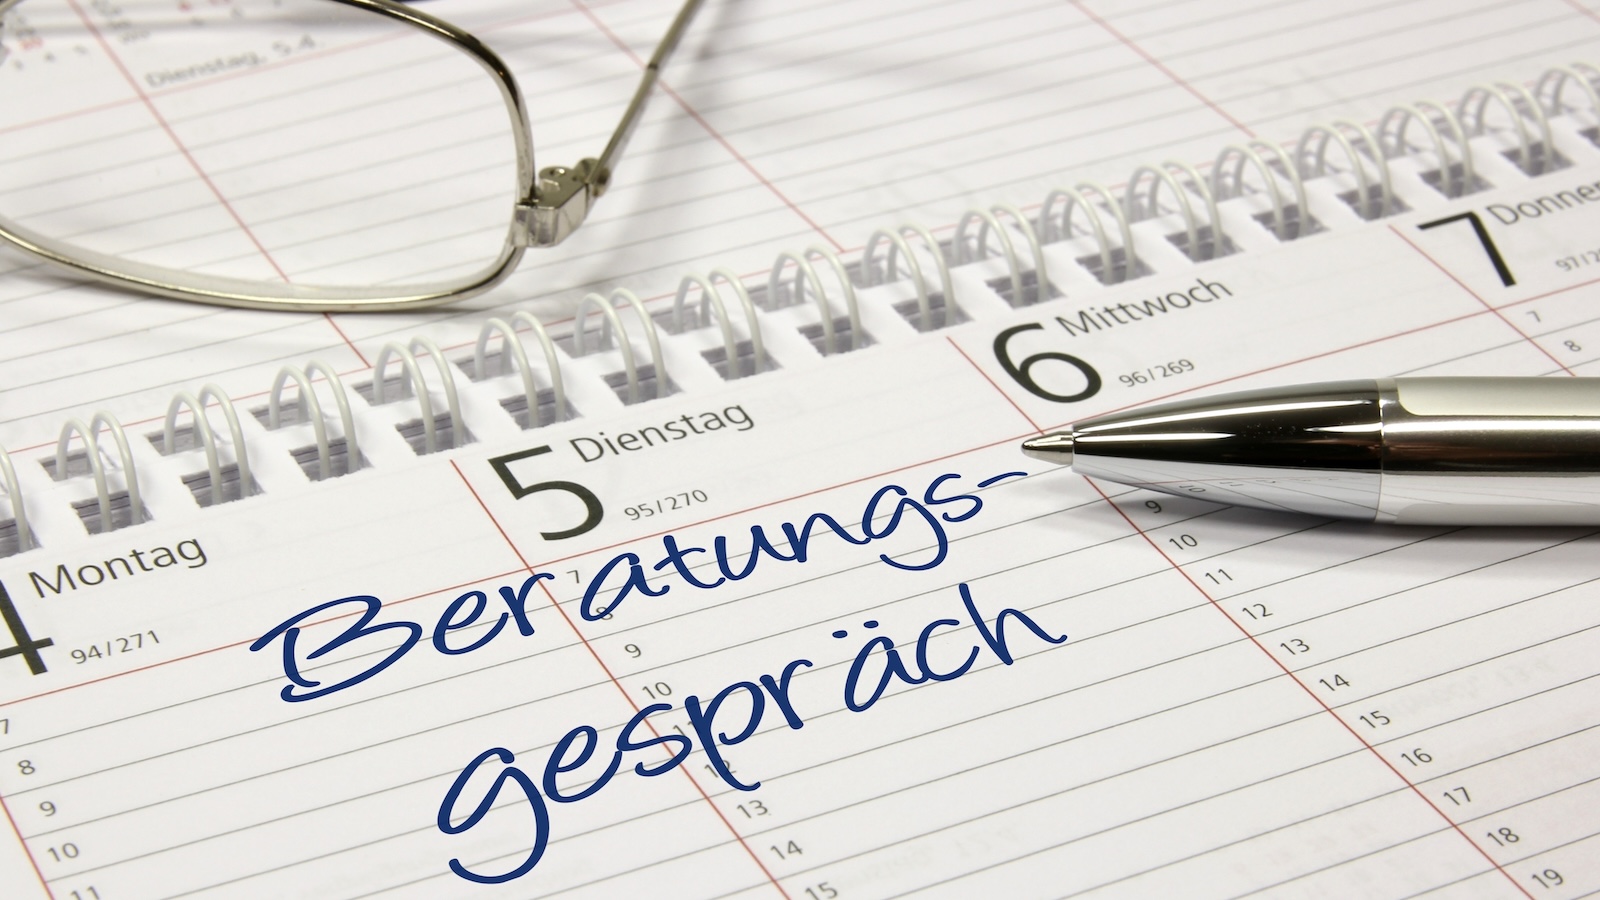 Dienstag, 5.4.
4 Montag
94/271
5 Dienstag
95/270
6 Mittwoch
96/269
7
Beratungs-
gespräch
7
8
9
10
11
7
8
9
10
11
12
13
14
15
9
10
11
12
13
14
15
16
17
18
19
7
8